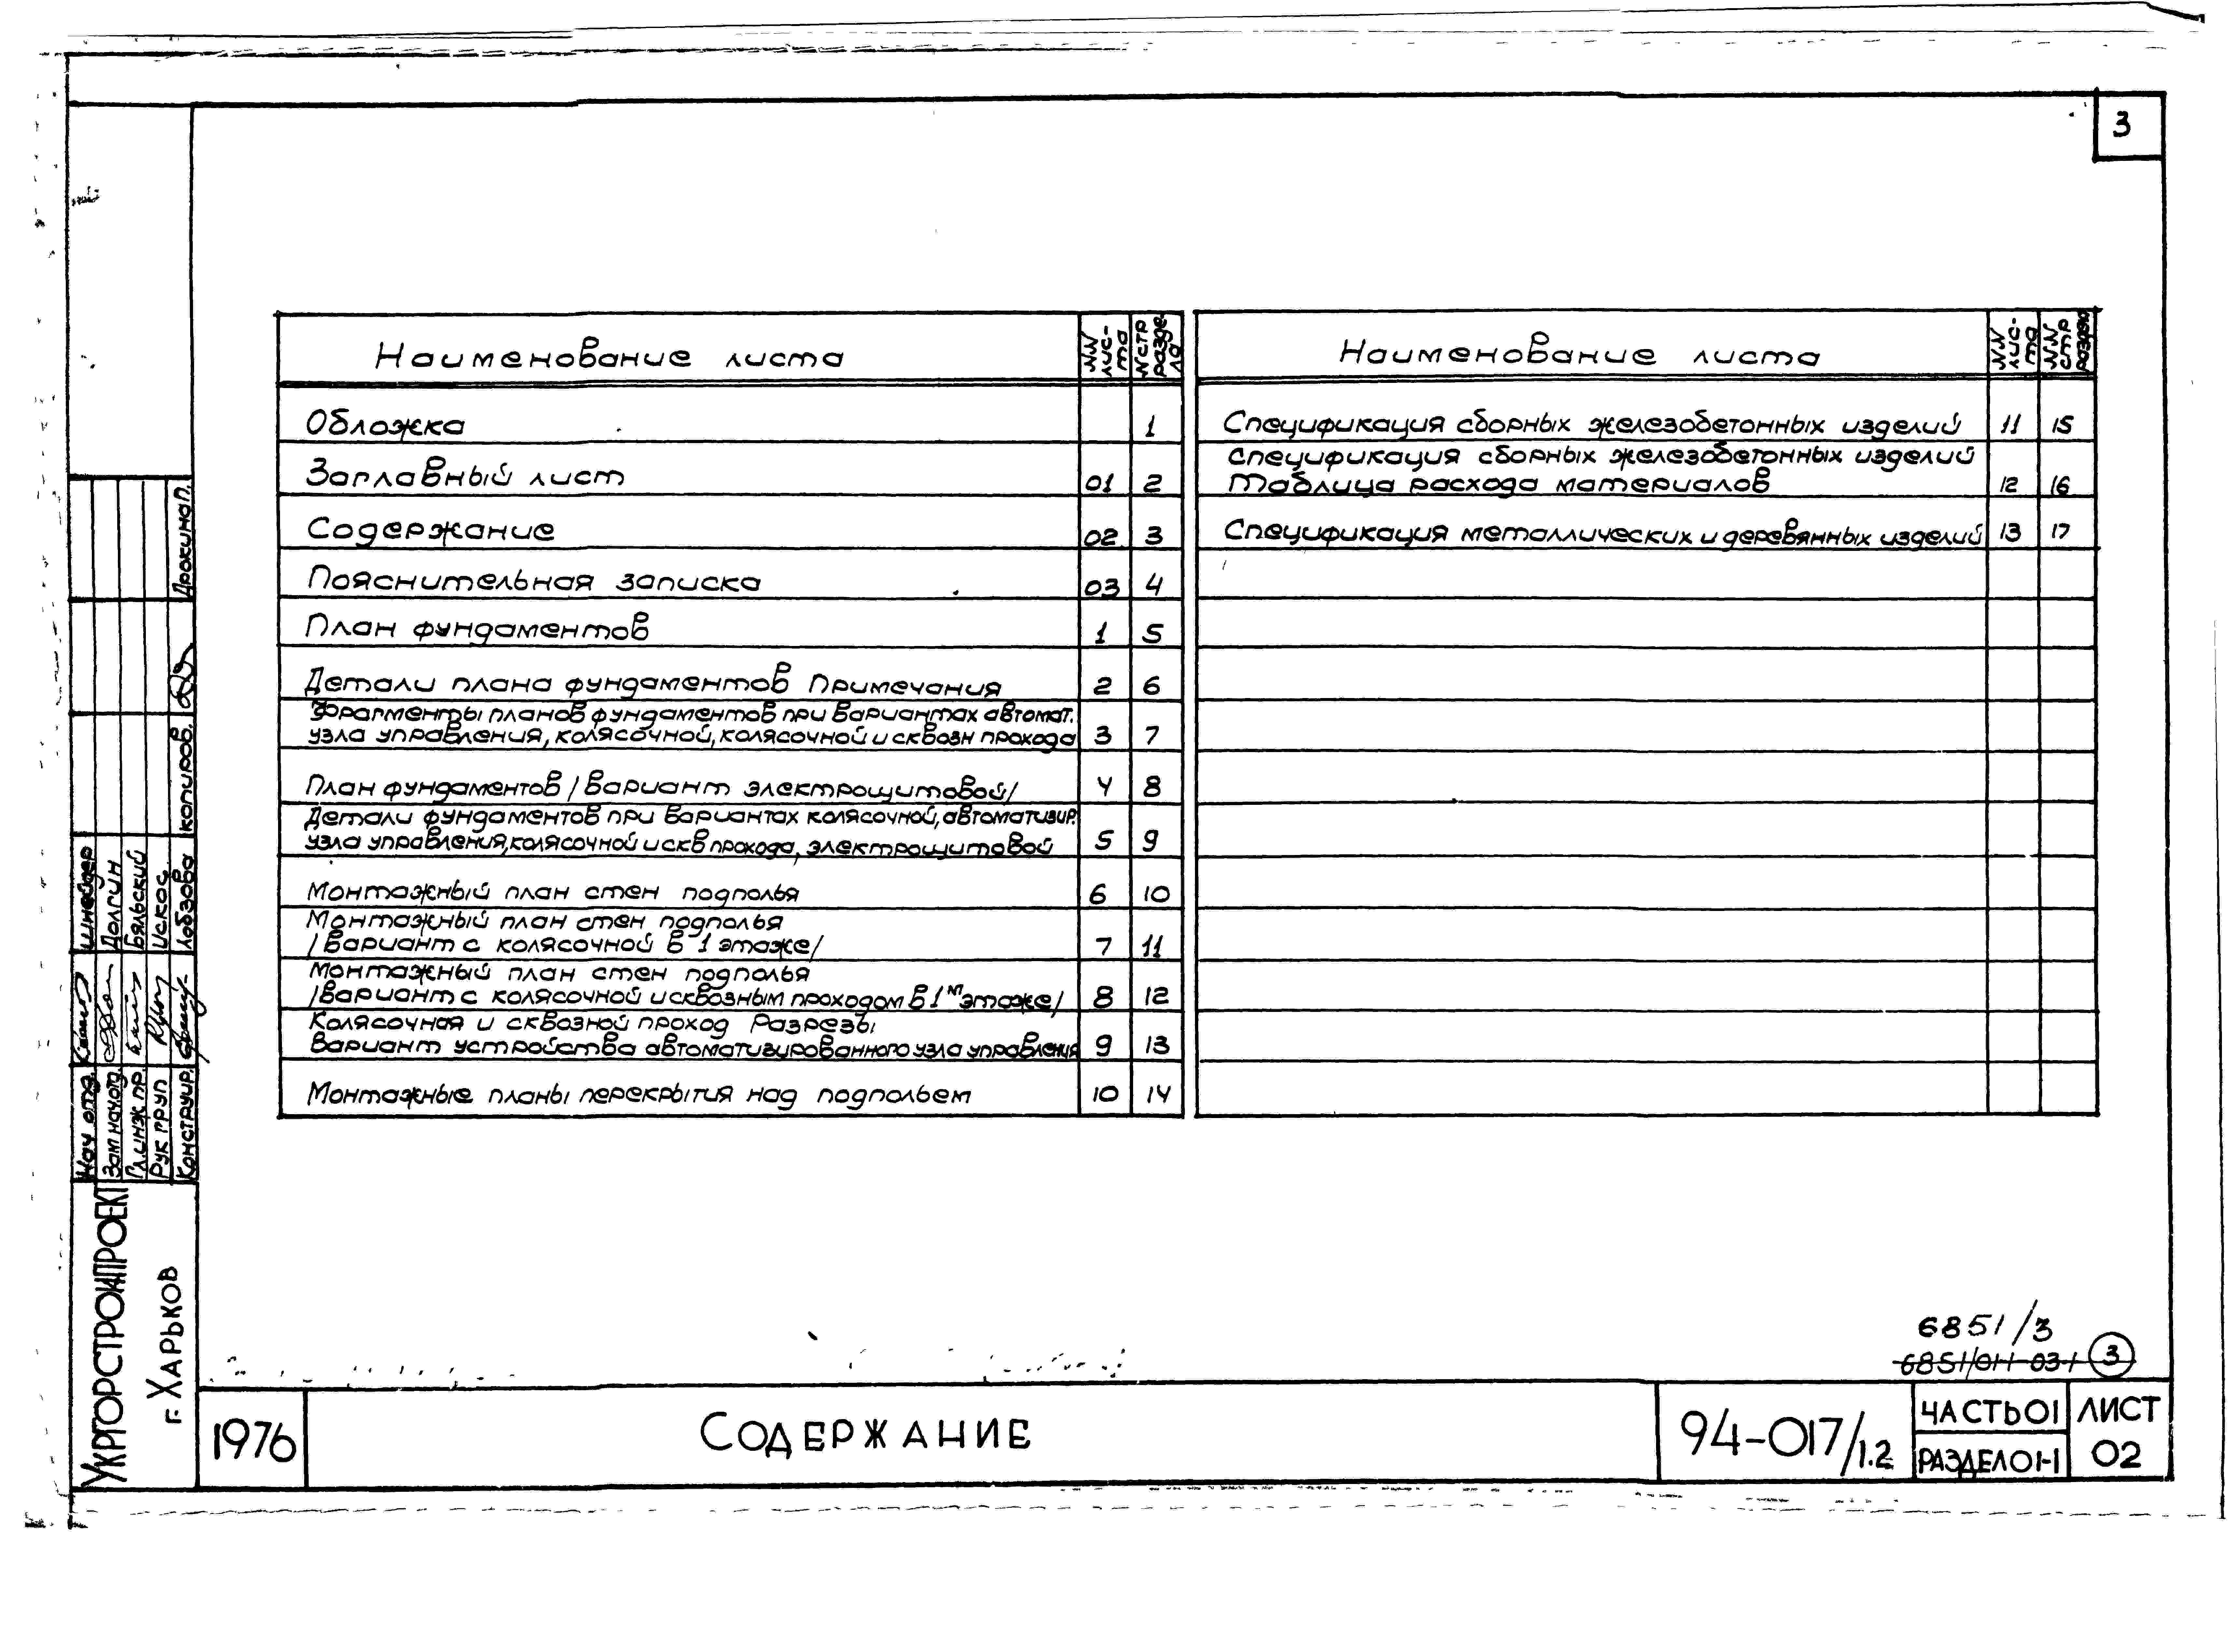 3
Наименование листа
NN лис-та
N стр разде-ла
Обложка 1
Заглавный лист 01 2
Содержание 02 3
Пояснительная записка 03 4
План фундаментов 1 5
Детали плана фундаментов Примечания 2 6
Фрагменты планов фундаментов при вариантах автомат.
узла управления, колясочной, колясочной и сквозн прохода 3 7
План фундаментов /вариант электрощитовой/ 4 8
Детали фундаментов при вариантах колясочной, автоматизир.
узла управления, колясочной и скв прохода, электрощитовой 5 9
Монтажный план стен подполья 6 10
Монтажный план стен подполья
/Вариант с колясочной в 1 этаже/ 7 11
Монтажный план стен подполья
/Вариант с колясочной и сквозным проходом в 1м этаже/ 8 12
Колясочная и сквозной проход Разрезы
Вариант устройства автоматизированного узла управления 9 13
Монтажные планы перекрытия над подпольем 10 14
Наименование листа
NN лис-та
NN стр раздела
Спецификация сборных железобетонных изделий 11 15
Спецификация сборных железобетонных изделий
Таблица расхода материалов 12 16
Спецификация металлических и деревянных изделий 13 17
Нач отд. Шнейдер
Зам нач.отд. Долгин
Гл.инж пр. Бяльский
Рук груп Искос
Конструир. Лобзова копиров. Дрокина П.
УКРГОРСТРОЙПРОЕКТ
г. ХАРЬКОВ
6851/3
3
1976
СОДЕРЖАНИЕ
94-017/1.2
ЧАСТЬ 01
РАЗДЕЛ 01-1
ЛИСТ
02